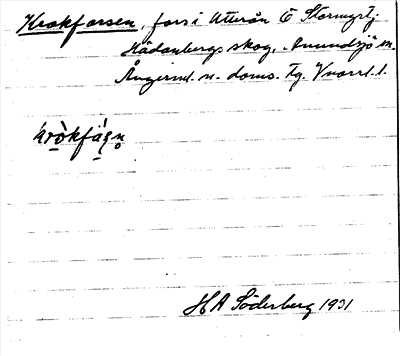 Krokforsen, fors i Utterån Ö Stormyrtj.
Hädanbergs skog, Anundsjö sn.
Ångerml. n. doms. tg. Vnorrl. l.
HA Söderberg 1931